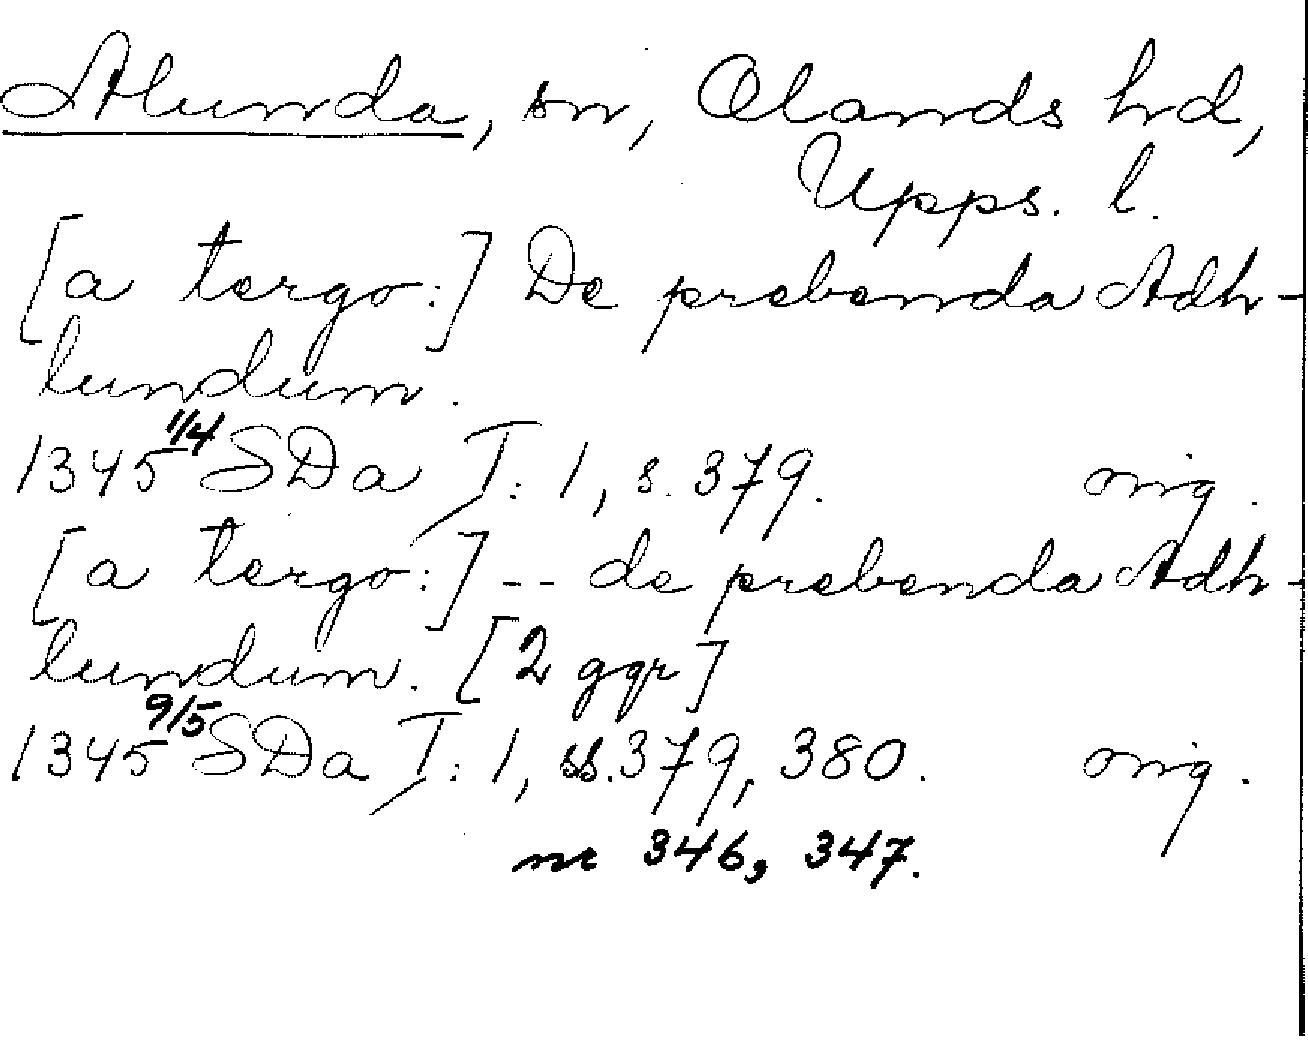 Alunda, sn, Olands hd,
Upps. l.
[a tergo:] De prebenda Adh-
lundum.
1345 1/4 SDa I: 1, s. 379. orig.
[a tergo:] -- de prebenda Adh-
lundum. [2 ggr]
1345 9/5 SDa I: 1, ss. 379, 380. orig.
nr 346, 347.